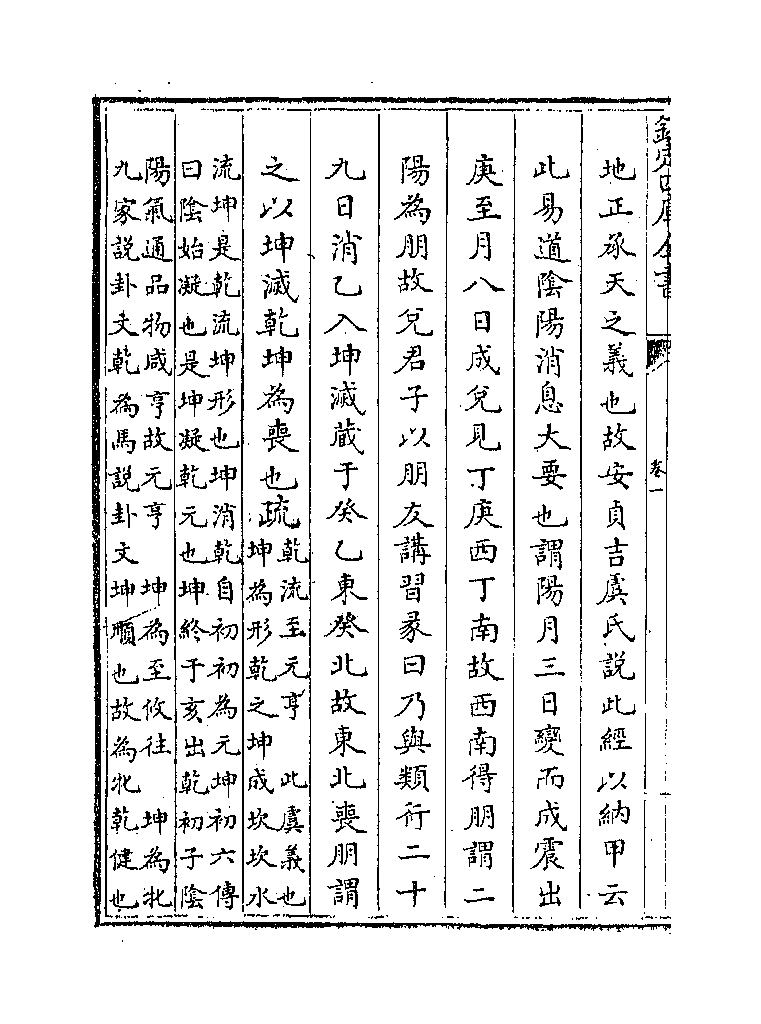 欽定四庫全書
卷一
地正承天之義也故安貞吉虞氏說此經以納甲云
此易道陰陽消息大要也謂陽月三日變而成震出
庚至月八日成兌見丁庚西丁南故西南得朋謂二
陽為朋故兌君子以朋友講習彖曰乃與類行二十
九日消乙入坤滅藏于癸乙東癸北故東北喪朋謂
之以坤滅乾坤為喪也疏乾流至元亨　此虞義也
坤為形乾之坤成坎坎水
流坤是乾流坤形也坤消乾自初初為元坤初六傳
曰陰始凝也是坤凝乾元也坤終于亥出乾初子陰
陽氣通品物咸亨故元亨　坤為至攸往　坤為牝
九家說卦文乾為馬說卦文坤順也故為牝乾健也